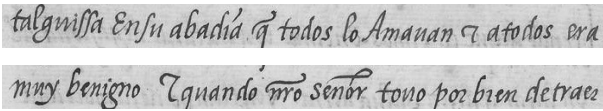 talguissa En su abadia q̃ todos lo Amavan ⁊ atodos era
muy benigno ⁊ quando nr̃o señor tovo por bien de traer